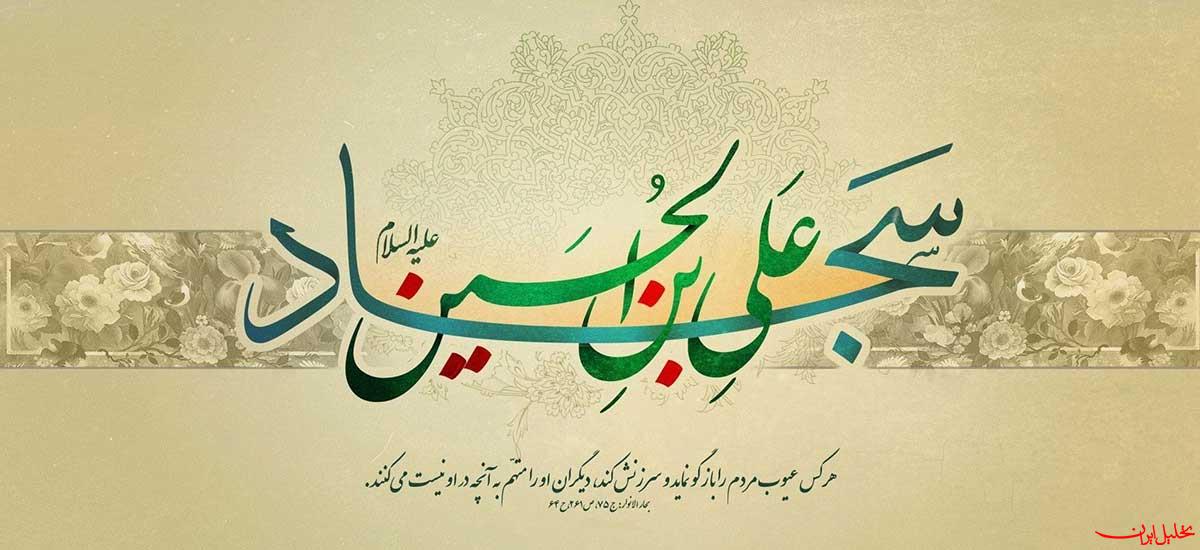 سجاد
عَلیِ بنِ الحُسَین
علیه السلام
هر کس عیوب مردم را بازگو نماید و سرزنش کند، دیگران او را متهّم به آنچه در او نیست می کنند.
بحار الانوار: ج ۷۵، ص ۲۶۱، ح ۶۴
تحلیل ایران